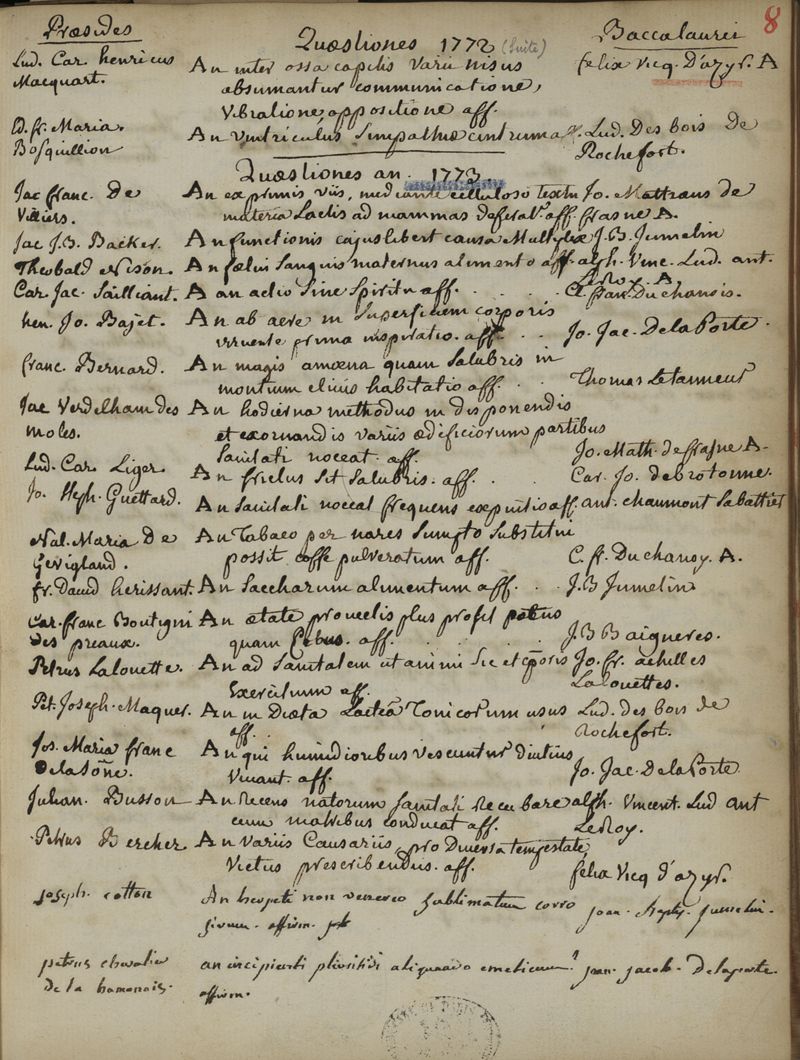 Præsides Quæstiones 1772 (suite) Baccalaurei 8
Lud. Car. henricus An inter ossa capitis varii nisus felix Vicq. D'azyr. A
Macquart. absumantur communicatione,
Vibratione, oppositione aff.
Ed. fr. Maria. An Ventriculus Simpathiæ centrum aff. Lud. Des bois De
Bosquillion Rochefort.
Quæstiones an. 1773
Jac franc. De An ex primis viis, mediante celluloso textu Jo. Mathæus de
Villiers. materia Lactis ad mammas deferatr. aff. frasne A.
Jac J.B. Backer. An functionis cujuslibet causa Multiplex J.B. Jumelin
Theobald Nison. An fœtui Sanguis maternus alimento aff. alph. Vinc. Lud. ant.
LeRoy. A
Car. Jac. Sailliant. A an actio Sine Spiritu aff. C. fran. Duchanois.
hen. Jo. Bajet. An ab aere in Superficiem corporis
irruente prima inspiratio. aff. Jo. Jac. DelaPorte.
franc. Bernard. An magis amœna quam Salubris in
montium clivis habitatio aff. Thomas Letanneur
Jac Verdelham des An hodierna methodus in disponendis
moles. et exornandis variis ædificiorum partibus
Sanitati noceat. aff. Jo. Math. defrasne A.
Lud. Car. Liger. An frictus Sit Salubris. aff. Car. Jo. debrotonne.
Jo. Steph. Guettard. An Sanitati noceat frequens exspuitio aff. ant. chaumont Sabattier
Nat. Maria De An Tabaco per nares Sumpto Substitui
Gevigland. possit coffe pulveratum aff. C. ff. Duchanoy. A.
fr. David herissant. An Saccharum alimentum aff. J.B Jumelin
Car. franc Boutigni An ætate provectis plus profit potus
Des preaux. quam Cibus. aff. J B Baigneres.
Petrus Lalouette. An ad Sanitatem ut animi Sic et corporis Jo. fr. achilles
Exercitium aff. Lalouettes.
Pet. Joseph. Maquer. An in Diæta Lactea Tonicorum usus Lud. des bois de
aff. Rochefort.
Jos. Maria franc An qui humidioribus vescuntur diutius
Delasône. Vivant. aff. Jo. Jac. DelaPorte
Julian. Busson An Recens natorum Sanitati Recubare alph. Vincent. Lud ant
cum matribus conducat aff. LeRoy.
Petrus Bercher An Variis Causariis, pro Diversa tempestate
Victus prescribendus. aff. félix Vicq d'azyr.
joseph. cotton An herpeti non venereo Sublimatum corro joan. steph. jumelin.
sivum. affirm.
petrus chevalier an incipienti pleuritidi aliquando emeticum? joan. jacob. delaporte.
de la hamonais. affirm.